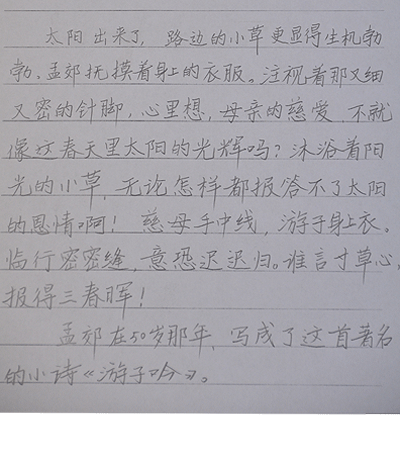 太阳出来了,路边的小草更显得生机勃
勃、孟郊抚摸着身上的衣服。注视着那又细
又密的针脚,心里想,母亲的慈爱,不就
像这春天里太阳的光辉吗?沐浴着阳
光的小草,无论怎样都报答不了太阳
的恩情啊!慈母手中线,游子身上衣。
临行密密缝,意恐迟迟归。谁言寸草心,
报得三春晖!
孟郊在50岁那年,写成了这首著名
的小诗《游子吟》。